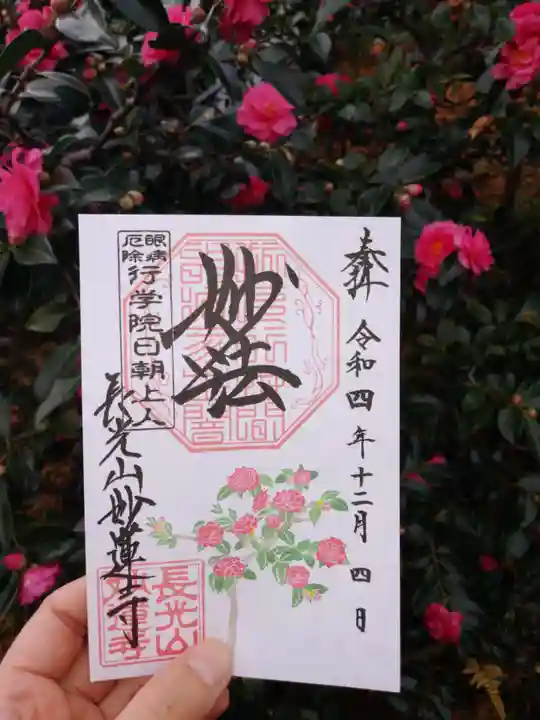 奉拝
令和四年十二月四日
妙法
眼病
厄除
行学院日朝上人
長光山妙蓮寺
長光山
妙蓮寺